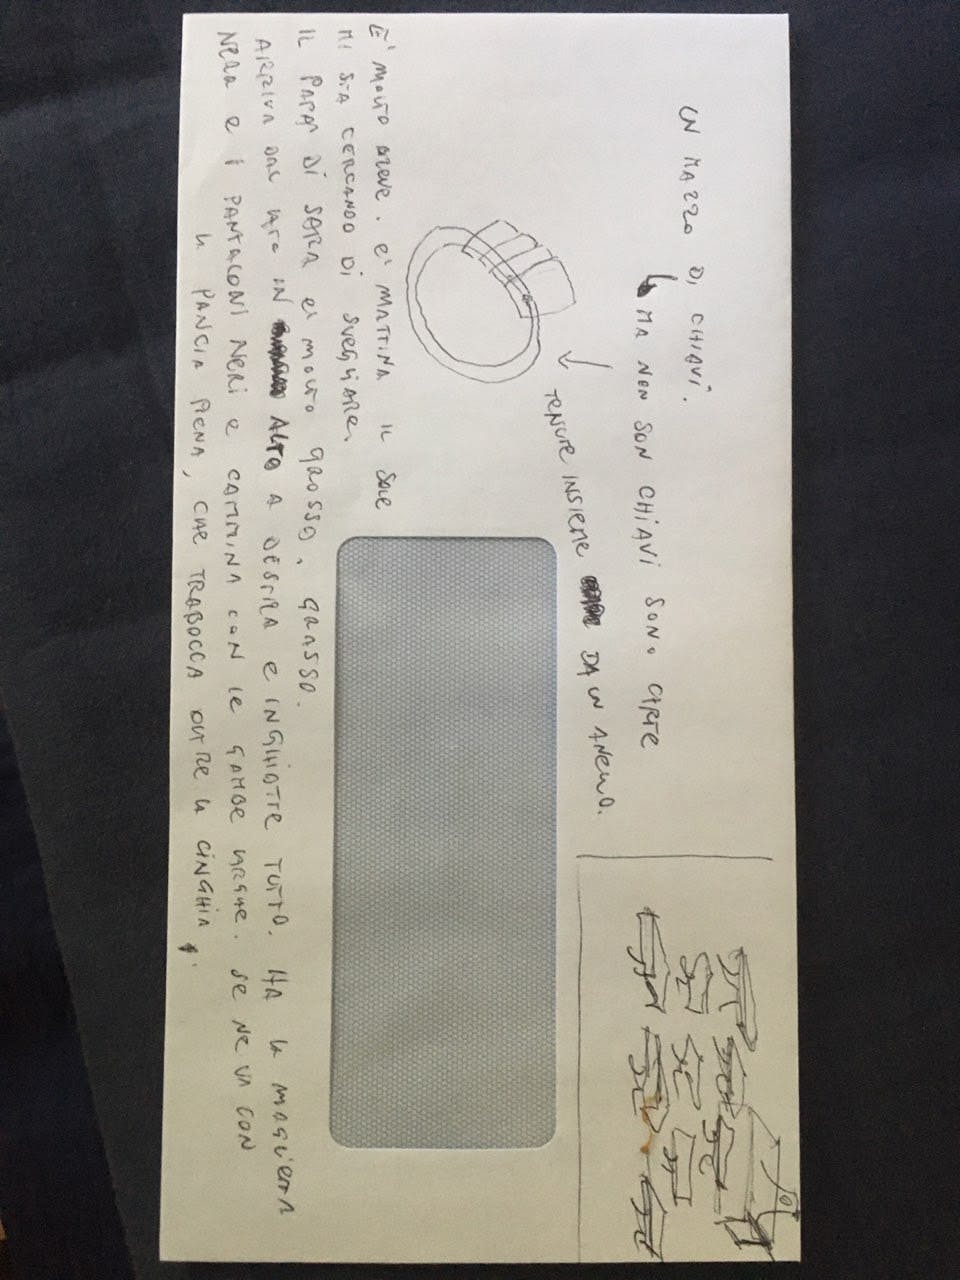 UN MAZZO DI CHIAVI.
MA NON SON CHIAVI SONO CARTE
TENUTE INSIEME DA UN ANELLO.
E' MOLTO BREVE. E' MATTINA IL SOLE
MI STA CERCANDO DI SVEGLIARE.
IL PAPÀ DI SARA E' MOLTO GROSSO, GRASSO.
ARRIVA DAL LATO IN ALTO A DESTRA E INGHIOTTE TUTTO. HA LA MAGLIETTA
NERA E I PANTALONI NERI E CAMMINA CON LE GAMBE LARGHE. SE NE VA CON
LA PANCIA PIENA, CHE TRABOCCA OLTRE LA CINGHIA.